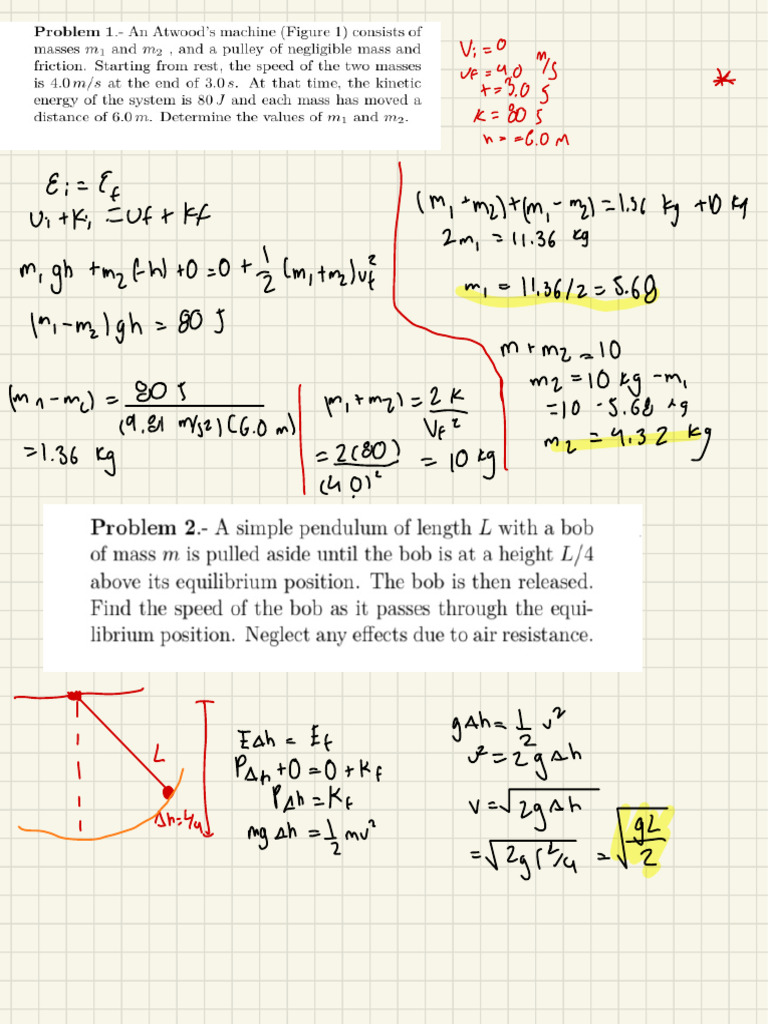 Problem 1.- An Atwood's machine (Figure 1) consists of
masses m₁ and m₂ , and a pulley of negligible mass and
friction. Starting from rest, the speed of the two masses
is 4.0 m/s at the end of 3.0 s. At that time, the kinetic
energy of the system is 80 J and each mass has moved a
distance of 6.0 m. Determine the values of m₁ and m₂.
Vi = 0
vf = 4.0 m/s
t = 3.0 s
K = 80 J
h = -6.0 M
*
Ei = Ef
Ui + Ki = Uf + Kf
m₁gh + m₂(-h) + 0 = 0 + 1/2 (m₁+m₂)vf²
(m₁-m₂)gh = 80 J
(m₁-m₂) = 80 J / (9.81 m/s²)(6.0 m)
= 1.36 kg
(m₁+m₂) = 2K / Vf²
= 2(80) / (4.0)² = 10 kg
(m₁+m₂)+(m₁-m₂) = 1.36 kg + 10 kg
2m₁ = 11.36 kg
m₁ = 11.36/2 = 5.68
m + m₂ = 10
m₂ = 10 kg - m₁
= 10 - 5.68 kg
m₂ = 4.32 kg
Problem 2.- A simple pendulum of length L with a bob
of mass m is pulled aside until the bob is at a height L/4
above its equilibrium position. The bob is then released.
Find the speed of the bob as it passes through the equi-
librium position. Neglect any effects due to air resistance.
L
Δh = L/4
EΔh = Ef
PΔh + 0 = 0 + Kf
PΔh = Kf
mgΔh = 1/2 mv²
gΔh = 1/2 v²
v² = 2gΔh
v = √2gΔh
= √2g(L/4 = √gL/2